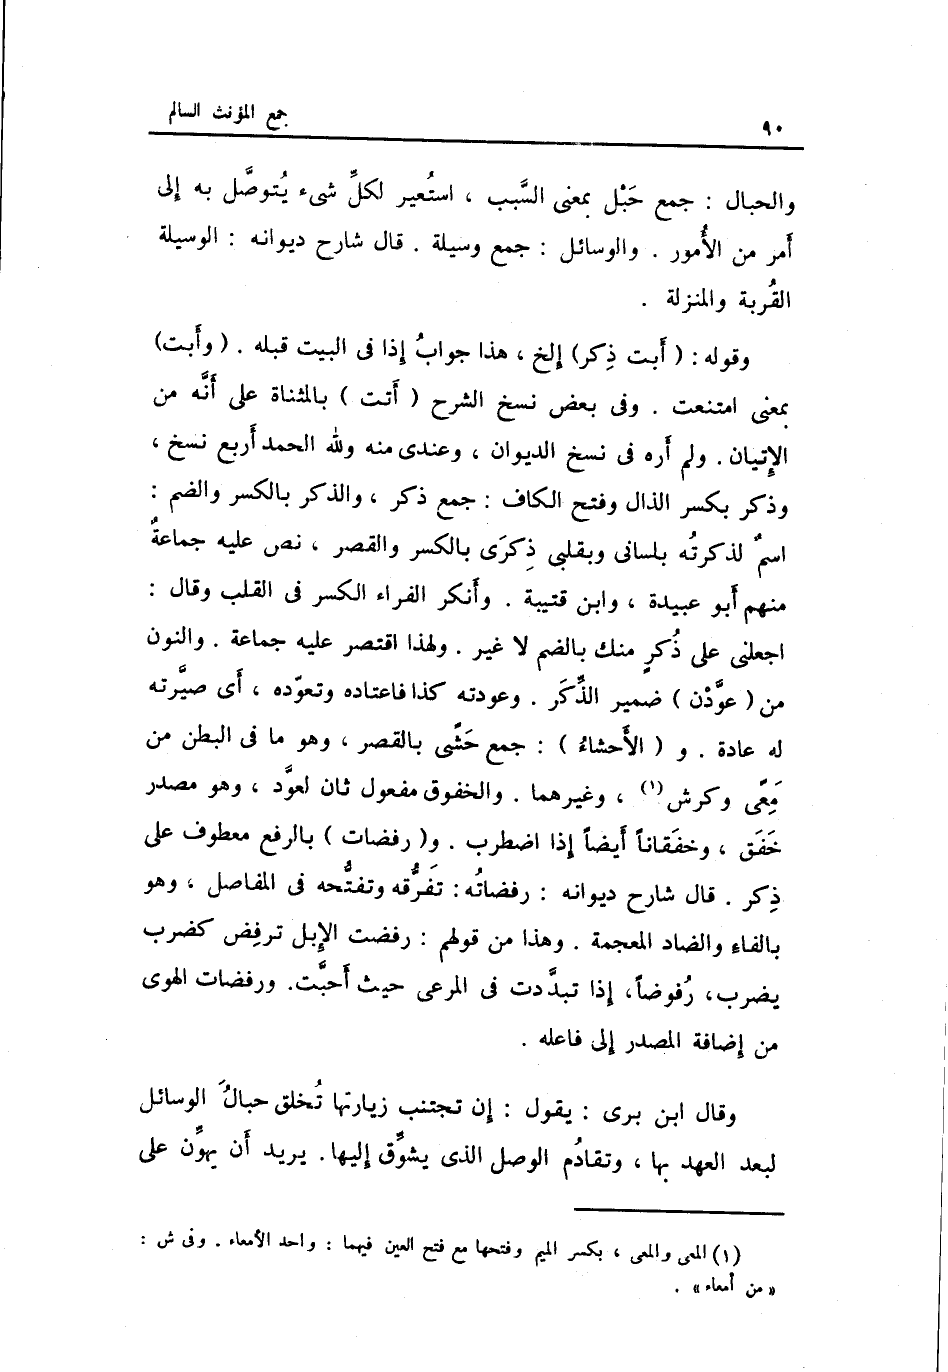 ٩٠
جمع المؤنث السالم
والحبال : جمع حَبْل بمعنى السَّبب ، استُعير لكلِّ شىء يُتوصَّل به إلى
أمر من الأُمور . والوسائل : جمع وسيلة . قال شارح ديوانه : الوسيلة
القُربة والمنزلة .
وقوله : ( أبت ذِكر) إلخ ، هذا جوابُ إذا فى البيت قبله . ( وأبت)
بمعنى امتنعت . وفى بعض نسخ الشرح ( أتت ) بالمثناة على أنَّه من
الإتيان . ولم أره فى نسخ الديوان ، وعندى منه ولله الحمد أربع نسخ ،
وذكر بكسر الذال وفتح الكاف : جمع ذكر ، والذكر بالكسر والضم :
اسمٌ لذكرتُه بلسانى وبقلبى ذِكرَى بالكسر والقصر ، نص عليه جماعةٌ
منهم أبو عبيدة ، وابن قتيبة . وأنكر الفراء الكسر فى القلب وقال :
اجعلنى على ذُكرٍ منك بالضم لا غير . ولهذا اقتصر عليه جماعة . والنون
من ( عوَّدْن ) ضمير الذِّكَر . وعودته كذا فاعتاده وتعوّده ، أى صيَّرته
له عادة . و ( الأَحشاءُ ) : جمع حَشًى بالقصر ، وهو ما فى البطن من
مَِعًى وكرش(١) ، وغيرهما . والخفوق مفعول ثان لعوَّد ، وهو مصدر
خَفَق ، وخفَقاناً أيضاً إذا اضطرب . و( رفضات ) بالرفع معطوف على
ذِكر . قال شارح ديوانه : رفضاتُه : تَفرُّقه وتفتُّحه فى المفاصل ، وهو
بالفاء والضاد المعجمة . وهذا من قولهم : رفضت الإبل ترفِض كضرب
يضرب ، رُفوضاً ، إذا تبدَّدت فى المرعى حيث أحبَّت. ورفضات الهوى
من إضافة المصدر إلى فاعله .
وقال ابن برى : يقول : إن تجتنب زيارتها تُخلق حبالُ الوسائل
لبعد العهد بها ، وتقادُم الوصل الذى يشوِّق إليها. يريد أن يهوِّن على
(١) المعى والمعى ، بكسر الميم وفتحها مع فتح العين فيهما : واحد الأمعاء . وفى ش :
« من أمعاء » .